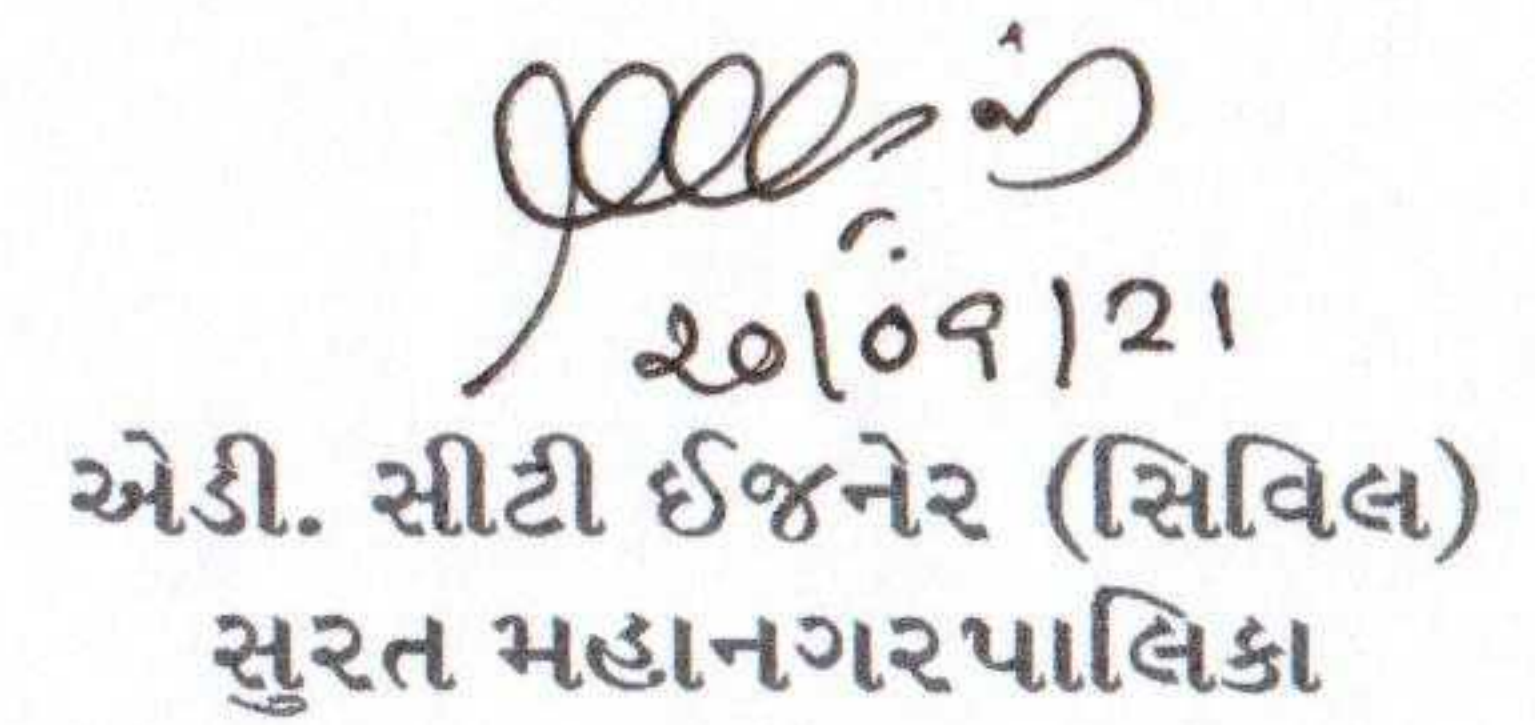 ૨૦/૦૧/21
એડી. સીટી ઈજનેર (સિવિલ)
સુરત મહાનગરપાલિકા